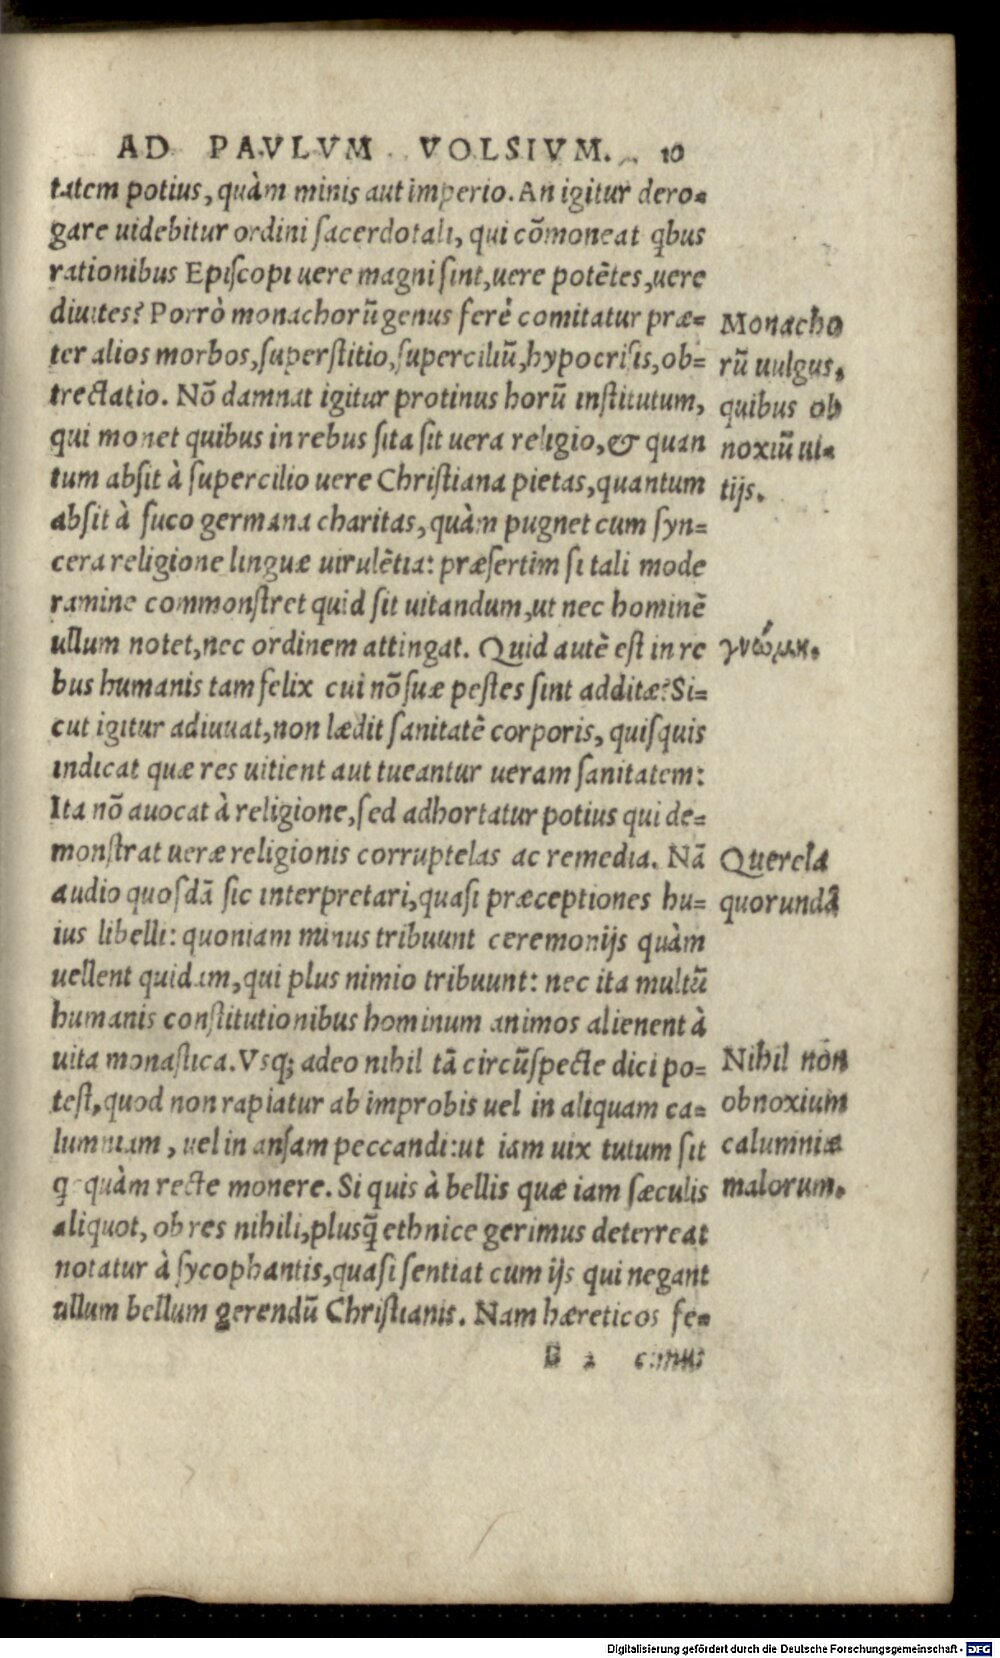 AD PAVLVM VOLSIVM. 10
tatem potius, quàm minis aut imperio. An igitur dero=
gare uidebitur ordini sacerdotali, qui cõmoneat q̃bus
rationibus Episcopi uere magni sint, uere potẽtes, uere
diuites? Porrò monachorũ genus ferè comitatur præ=
ter alios morbos, superstitio, superciliũ, hypocrisis, ob=
trectatio. Nõ damnat igitur protinus horũ institutum,
qui monet quibus in rebus sita sit uera religio, & quan
tum absit à supercilio uere Christiana pietas, quantum
absit à fuco germana charitas, quàm pugnet cum syn=
cera religione linguæ uirulẽtia: præsertim si tali mode
ramine commonstret quid sit uitandum, ut nec hominẽ
ullum notet, nec ordinem attingat. Quid autẽ est in re
bus humanis tam felix cui nõ suæ pestes sint additæ? Si=
cut igitur adiuuat, non lædit sanitatẽ corporis, quisquis
indicat quæ res uitient aut tueantur ueram sanitatem:
Ita nõ auocat à religione, sed adhortatur potius qui de=
monstrat ueræ religionis corruptelas ac remedia. Nã
audio quosdã sic interpretari, quasi præceptiones hu=
ius libelli: quoniam minus tribuunt ceremonijs quàm
uellent quidam, qui plus nimio tribuunt: nec ita multũ
humanis constitutionibus hominum animos alienent à
uita monastica. Vsq; adeo nihil tã circũspecte dici po=
test, quod non rapiatur ab improbis uel in aliquam ca=
lumniam, uel in ansam peccandi: ut iam uix tutum sit
quàm recte monere. Si quis à bellis quæ iam sæculis
aliquot, ob res nihili, plusq̃ ethnice gerimus deterreat
notatur à sycophantis, quasi sentiat cum ijs qui negant
ullum bellum gerendũ Christianis. Nam hæreticos fe=
B 2
Monacho
rũ uulgus,
quibus ob
noxiũ ui=
tijs.
γνώμη.
Querela
quorundã
Nihil non
obnoxium
calumniæ
malorum.
Digitalisierung gefördert durch die Deutsche Forschungsgemeinschaft - DFG